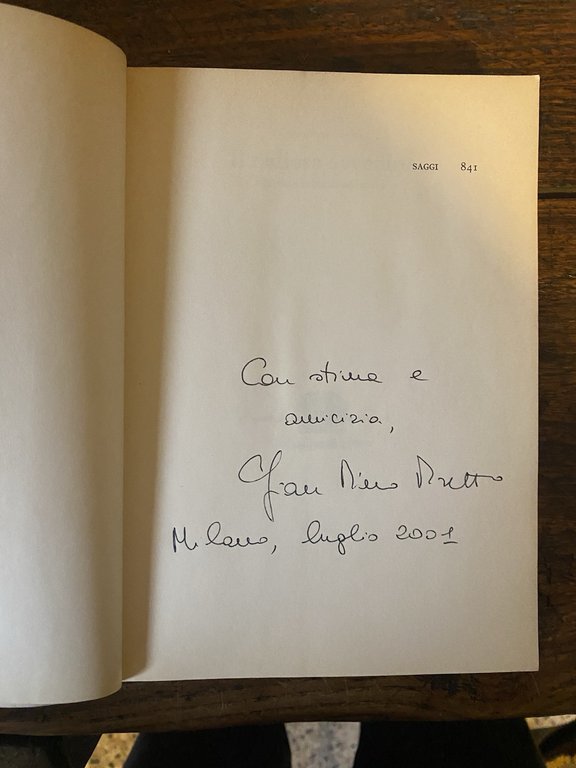 SAGGI 841
Con stima e
amicizia,
Gian Piero Piretto
Milano, luglio 2001